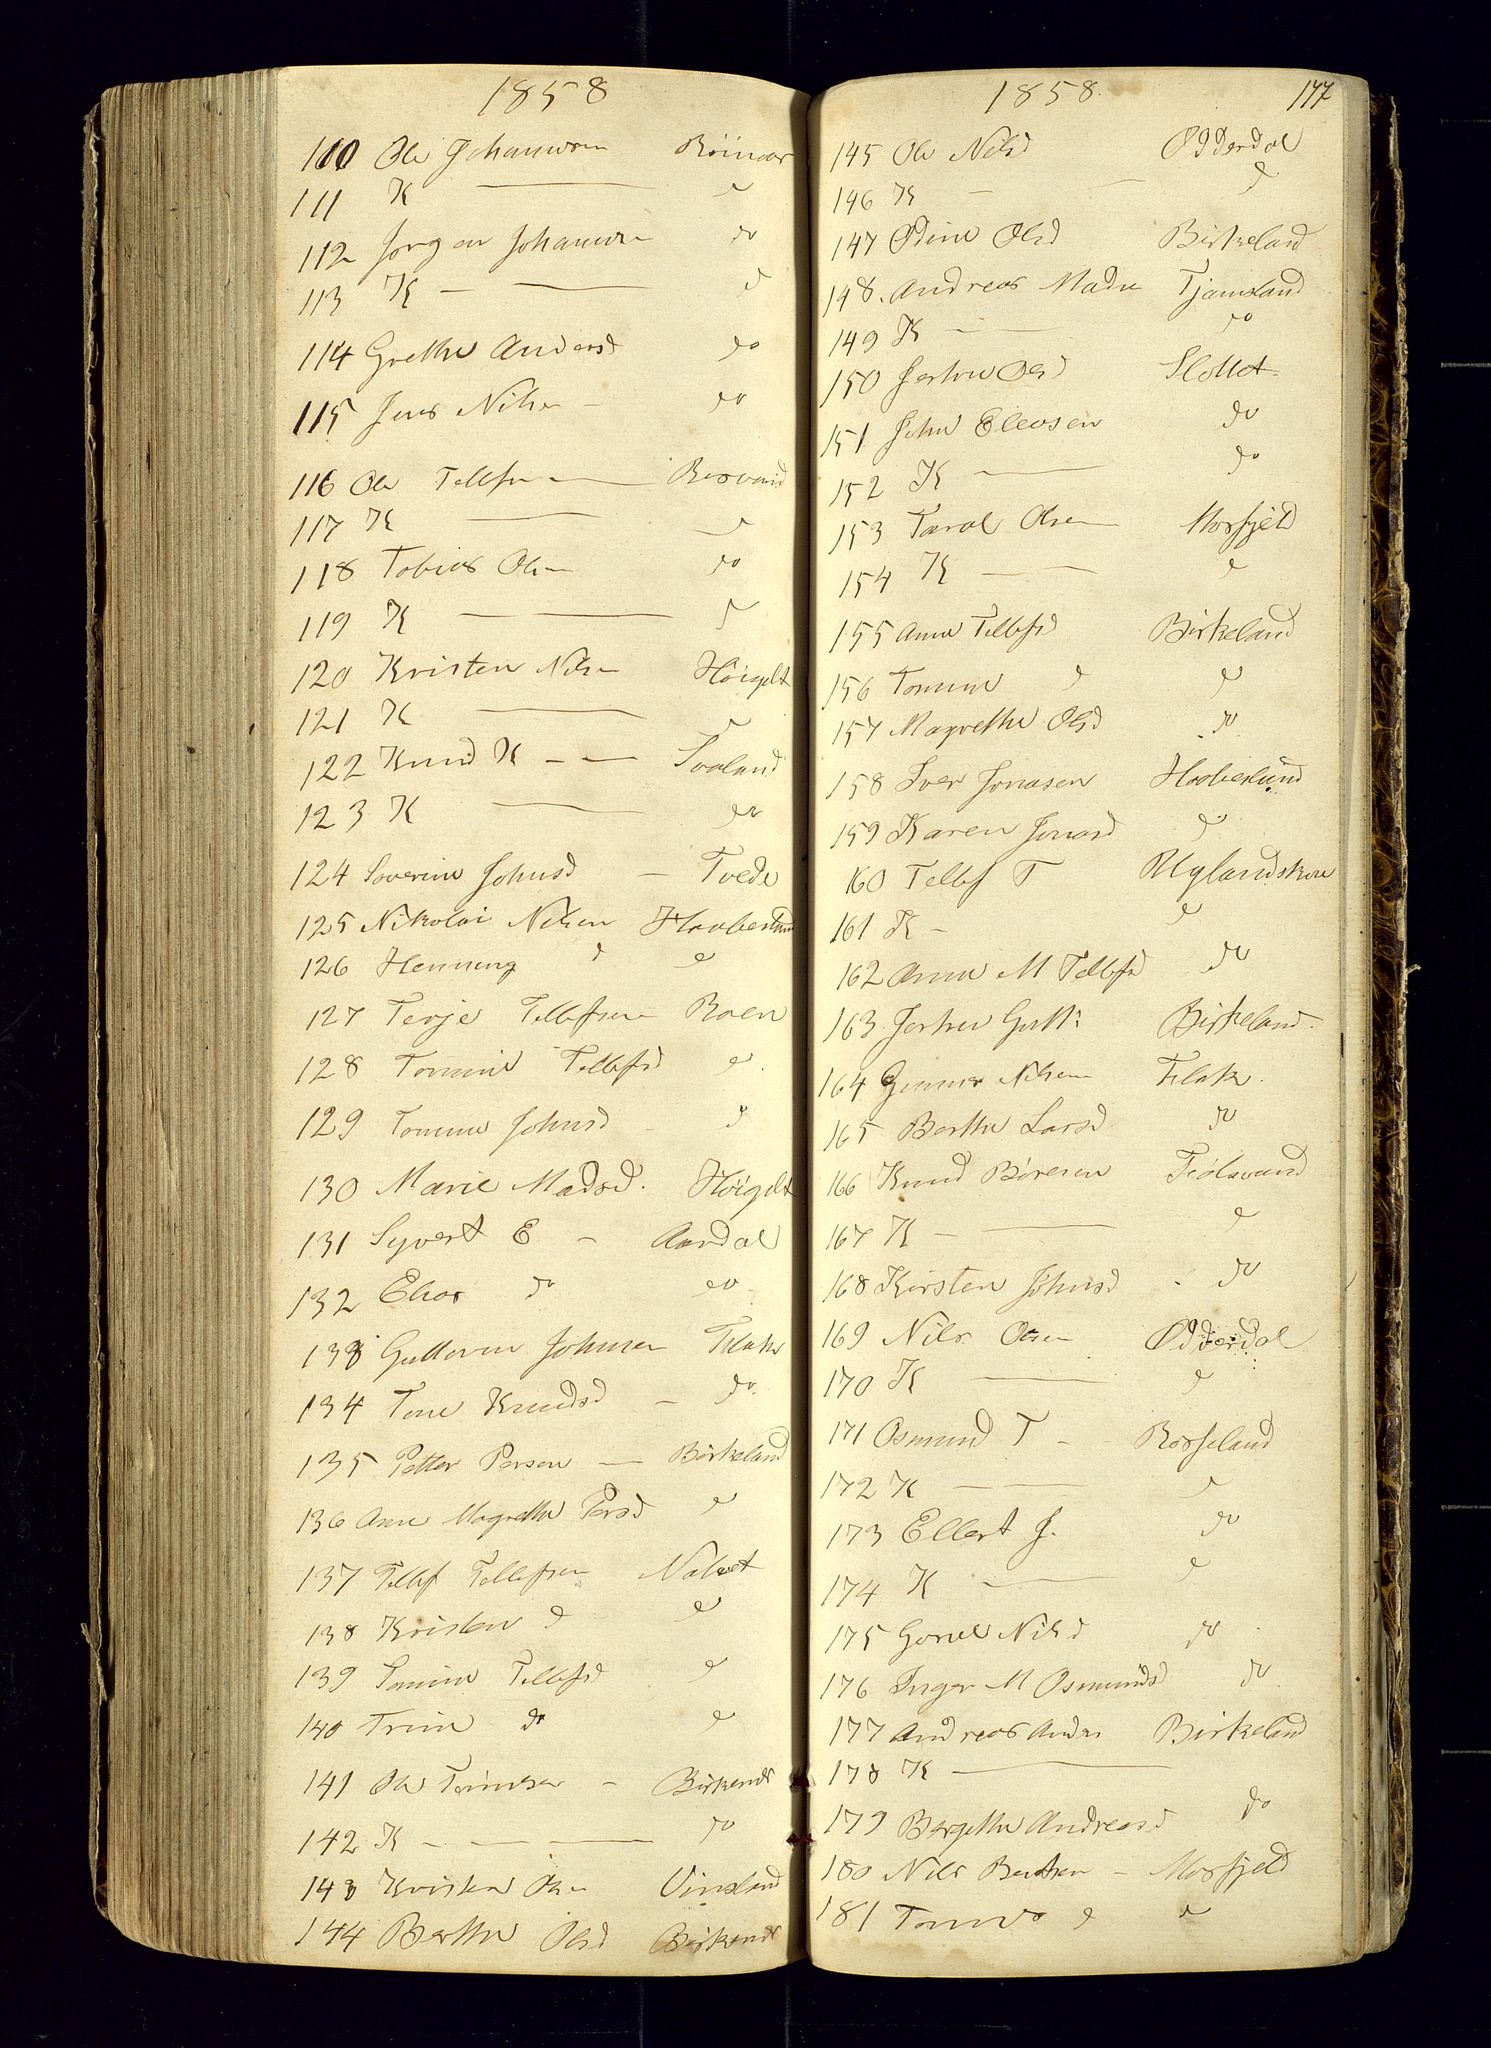 1858
110 Ole Johannsen Röinaas
111 K — d
112 Jørgen Johannsen do
113 K — — d
114 Grethe Andersd do
115 Jens Nilsen - do
116 Ole Tellefsen — Rosvand
117 K — d
118 Tobias Olsen do
119 K — d
120 Kristen Nilsen Höigilt
121 K — d
122 Knud K - — Svaland
123 K — do
124 Severine Johnsd — Tvede
125 Nikolai Nilsen Haabeslund
126 Henning d d
127 Terje Tellefsen Boen
128 Tomine Tellefsd d
129 Tomine Johnsd d
130 Marie Madsd. Höigilt
131 Syvert E - Aardal
132 Elias do do
133 Guttorm Johnsen Flak
134 Tone Knudsd — do
135 Petter Persen — Birkeland
136 Anne Magrethe Persd d
137 Tellef Tellefsen
138 Kristen d d
139 Tomine Tellefsd d
140 Trine do d
141 Ole Terjesen - Birkenes
142 K - — — do
143 Kristen Olsen Vinsland
144 Berthe Olsd Birkenes
1858. 177
145 Ole Nilsd Odderdal
146 K - - d
147 Odine Olsd Birkeland
148. Andreas Madsen Tjamsland
149 K — — do
150 Jertrue Olsd Slottet
151 John Eleasen do
152 K — do
153 Taral Olsen Mosfjeld
154 K — — d
155 Anne Tellefsd Birkeland
156 Tomine d d
157 Magrethe Olsd do
158 Iver Jonasen Haabeslund
159 Karen Jonasd d
160 Tellef T Uglandskou
161 K - d
162 Anne M Tellefsd do
163 Jertrue Gutt: Birkeland.
164 Gunner Nilsen Flak.
165 Berthe Larsd do
166 Knud Böresen Fiölsvand
167 K - — d
168 Kirsten Johnsd do
169 Nils Olsen Odderdal
170 K — d
171 Osmund T - Rosseland
172 K — d
173 Ellert J. do
174 K — d
175 Gorine Nilsd do
176 Inger M Osmundsd do
177 Andreas Anders Birkeland
178 K —
179 Bergithe Andreasd do
180 Nils Bentsen - Mosfjeld
181 Tomas d d